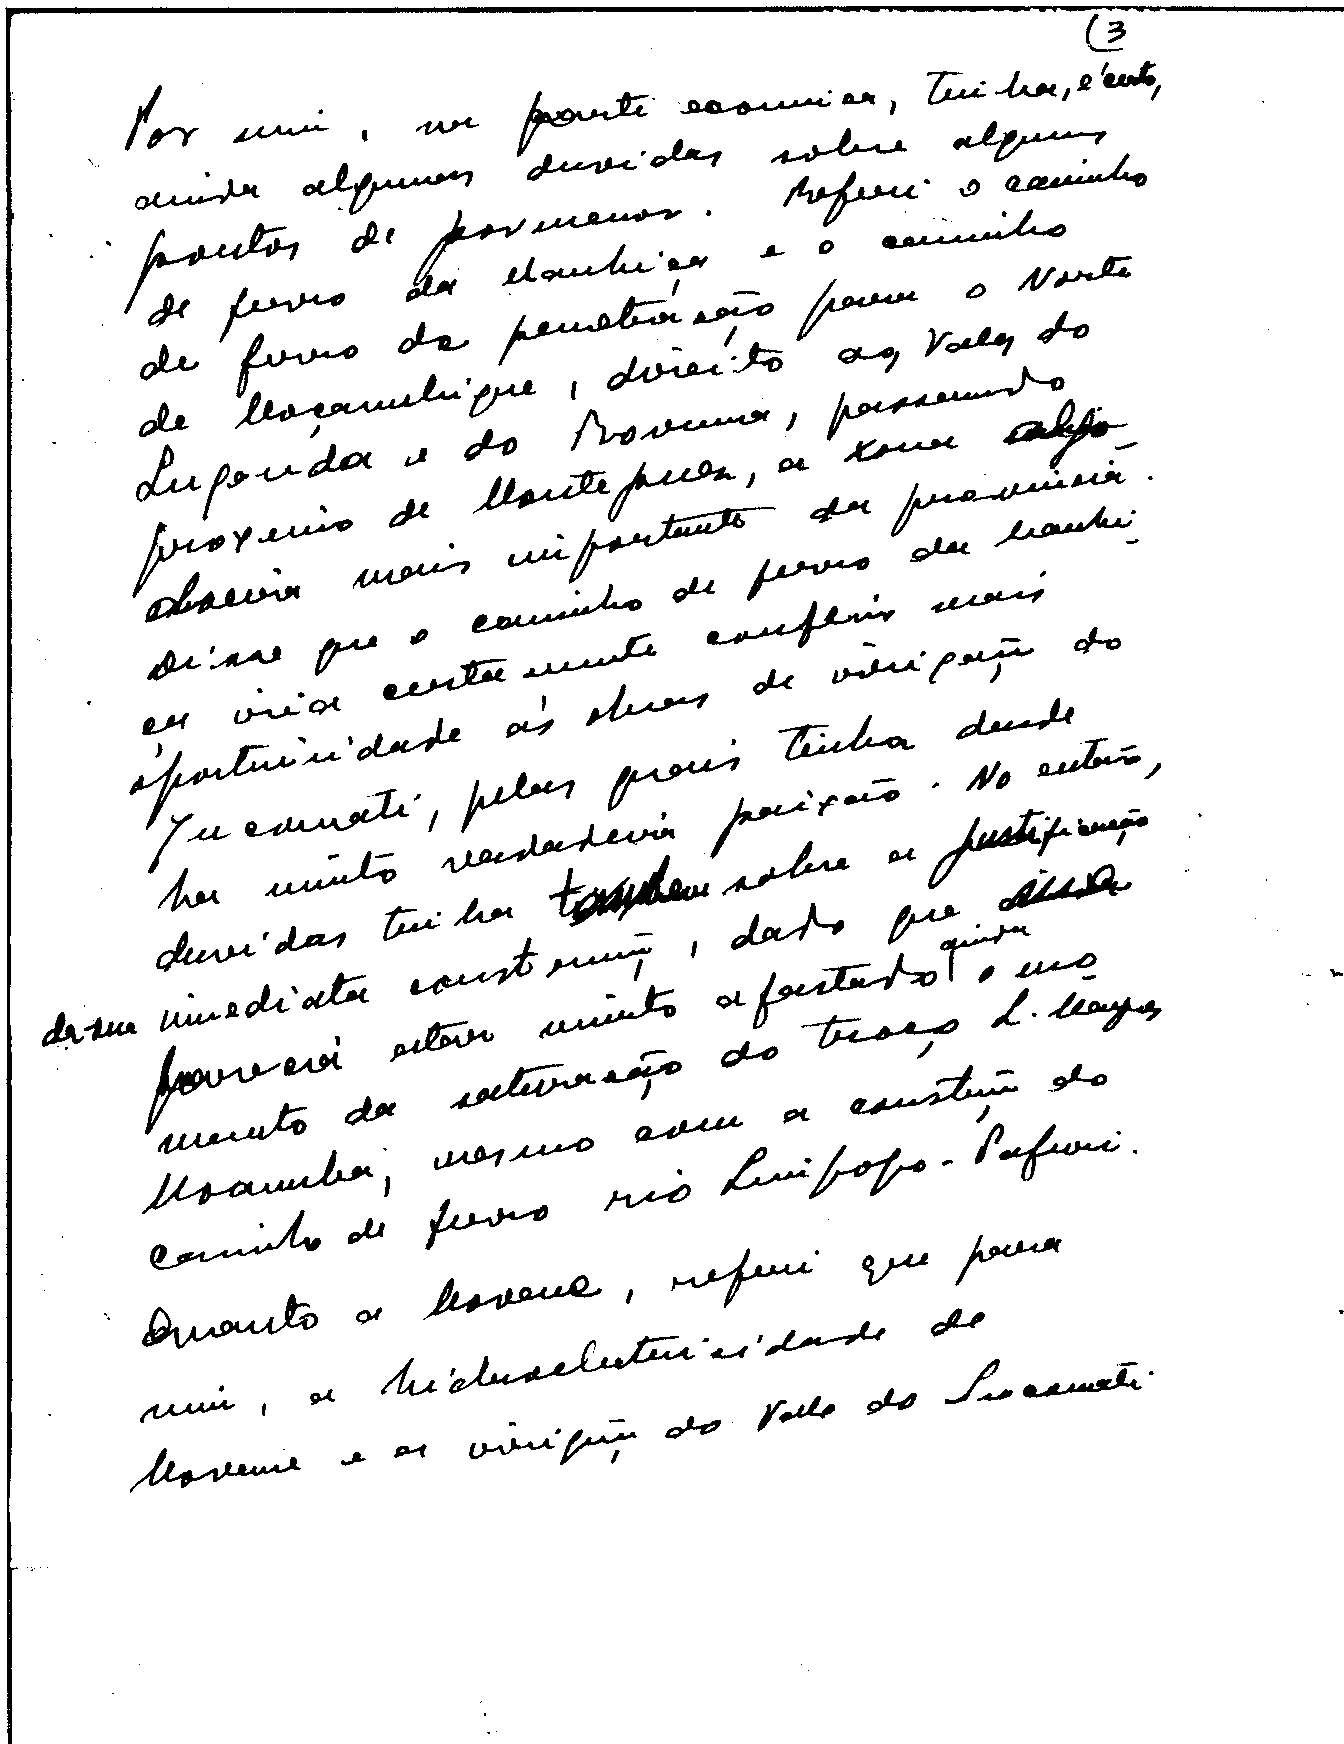 (3
Por mim, na parte economica, tinha, é certo,
ainda algumas duvidas sobre alguns
pontos de pormenor. Referi o caminho
de ferro da Manhiça e o caminho
de ferro de penetração para o Norte
de Moçambique, direito aos Vales do
Lugenda e do Rovuma, passando
proximo de Montepuez, a zona algo-
doeira mais importante da provincia.
Disse que o caminho de ferro da Manhi-
ça viria certamente conferir mais
oportunidade ás obras de irrigação do
Incomati, pelas quais tinha desde
ha muito verdadeira paixão. No entanto,
duvidas tinha sobre a justificação
da sua imediata construção, dado que
parecia estar muito afastado ainda o mo-
mento da saturação do troço L. Marques
Moamba, mesmo com a constução do
caminho de ferro rio Limpopo-Pafuri.
Quanto a Movene, referi que para
mim, a hidroelectricidade de
Movene e a irrigção do Vale do Incomati